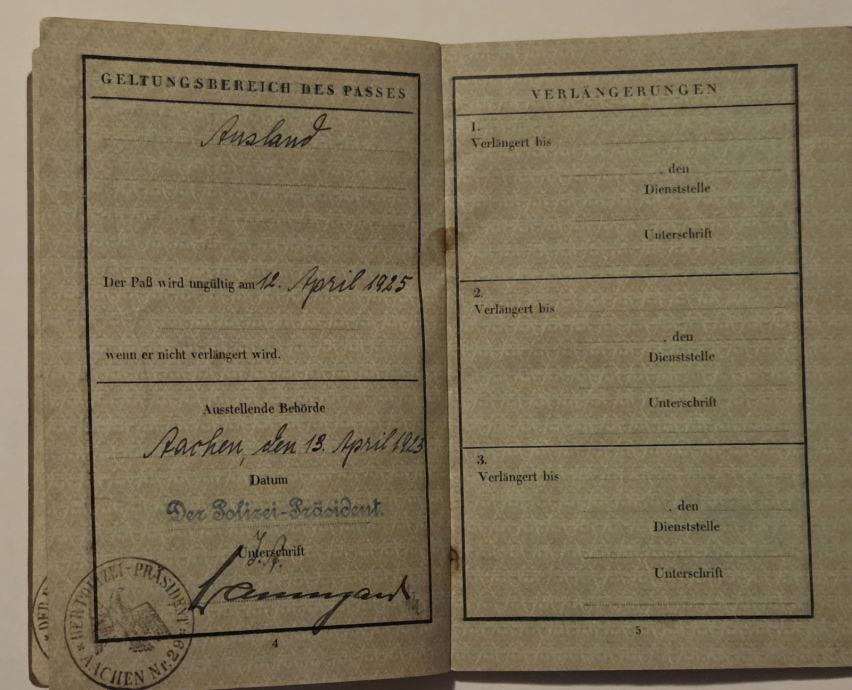 GELTUNGSBEREICH DES PASSES
Ausland
Der Paß wird ungültig am 12. April 1925
wenn er nicht verlängert wird.
Ausstellende Behörde
Aachen, den 13. April 1923
Datum
Der Polizei-Präsident.
I.A.
Unterschrift
DER POLIZEI-PRÄSIDENT
AACHEN Nr. 29
4
VERLÄNGERUNGEN
1.
Verlängert bis
, den
Dienststelle
Unterschrift
2.
Verlängert bis
, den
Dienststelle
Unterschrift
3.
Verlängert bis
, den
Dienststelle
Unterschrift
5